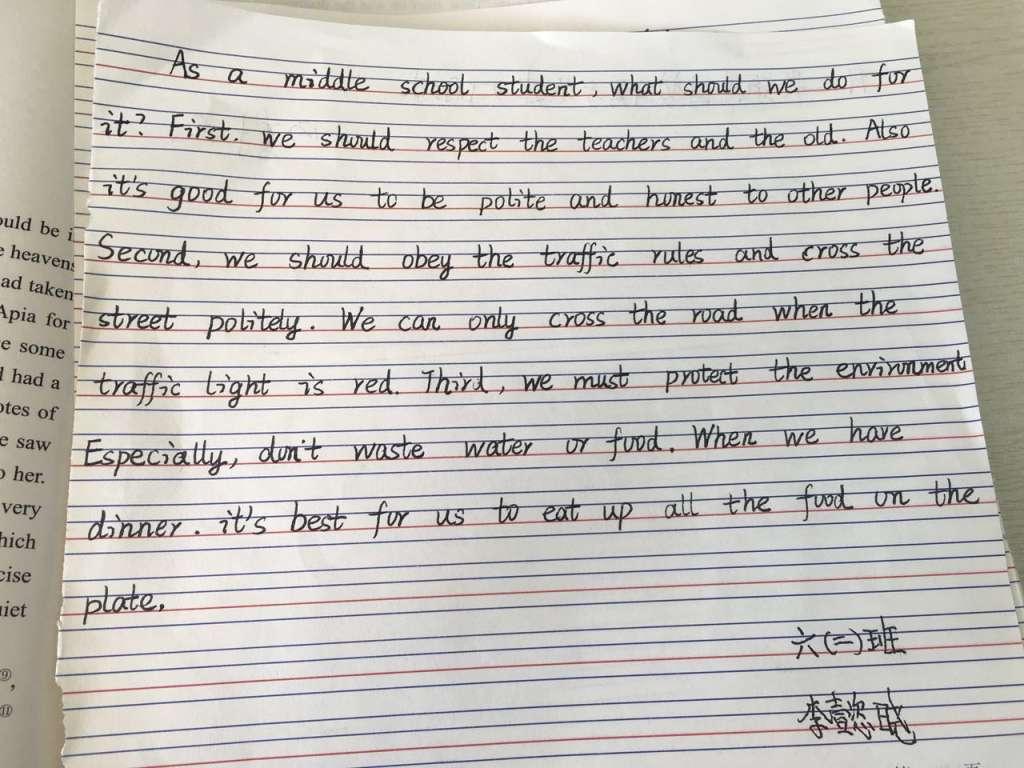 As a middle school student, what should we do for
it? First. we should respect the teachers and the old. Also
it's good for us to be polite and honest to other people.
Second, we should obey the traffic rules and cross the
street politely. We can only cross the road when the
traffic light is red. Third, we must protect the environment
Especially, don't waste water or food. When we have
dinner. it's best for us to eat up all the food on the
plate.
六(二)班
李壹
ould be i
e heavens
ad taken
Apia for
e some
d had a
otes of
e saw
o her.
very
hich
cise
uiet
⑨,
⑪